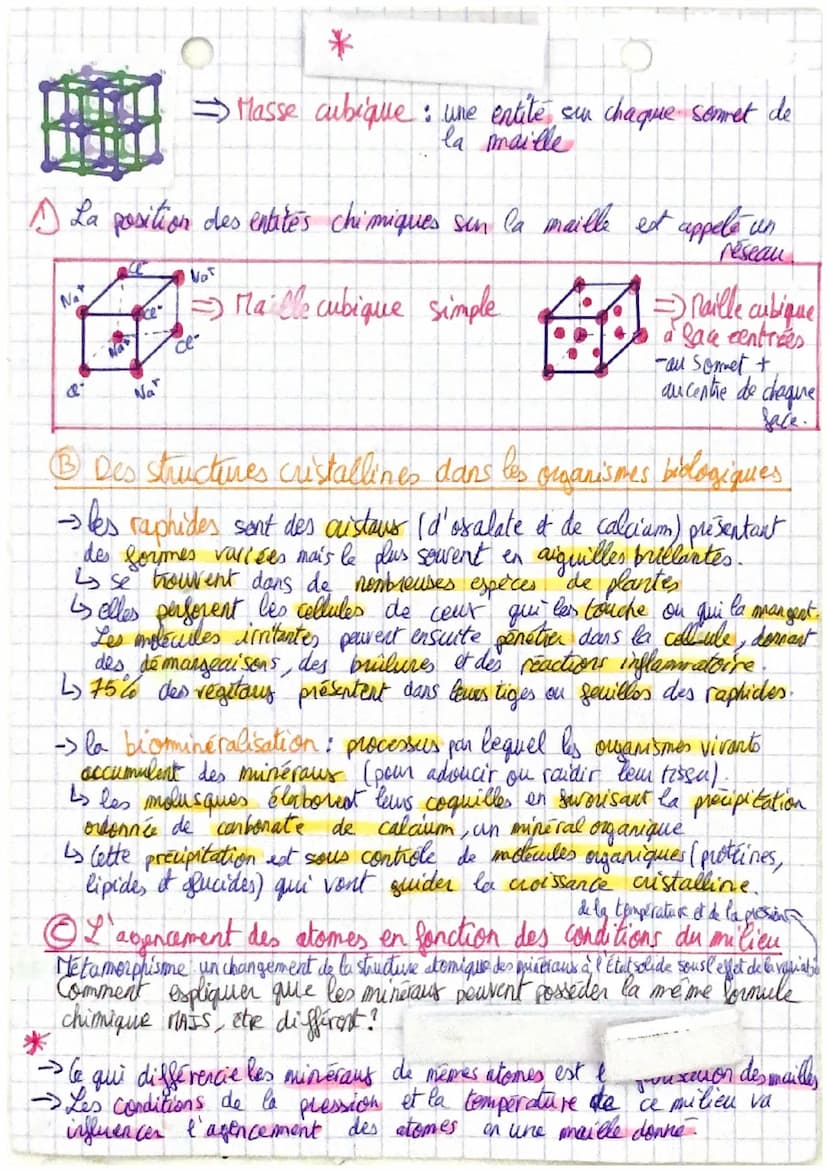 *
⇒ Masse cubique : une entité sur chaque sommet de
la maille
1) La position des entités chimiques sur la maille est appelé un
réseau.
Cl⁻ Na⁺
Na⁺ Cl⁻
Na⁺ Cl⁻
Cl⁻ Na⁺
⇒ Maille cubique simple
⇒ Maille cubique
à face centrées
- au sommet +
au centre de chaque
face.
Ⓑ Des structures cristallines dans les organismes biologiques
→ les raphides sont des cristaux (d'oxalate et de calcium) présentant
des formes variées mais le plus souvent en aiguilles brillantes.
↳ se trouvent dans de nombreuses espèces de plantes
↳ elles perforent les cellules de ceux qui les touche ou qui la mangent.
Les molécules irritantes peuvent ensuite pénétrer dans la cellule, donnant
des démangeaisons, des brûlures et des réactions inflammatoire.
↳ 75% des végétaux présentent dans leurs tiges ou feuilles des raphides.
→ la biominéralisation : processus par lequel les organismes vivants
accumulent des minéraux (pour adoucir ou raidir leur tissu).
↳ les molusques élaborent leurs coquilles en favorisant la précipitation
ordonnée de carbonate de calcium, un minéral organique
↳ Cette précipitation est sous contrôle de molécules organiques (protéines,
lipides et glucides) qui vont guider la croissance cristalline.
de la température et de la pression
Ⓒ L'agencement des atomes en fonction des conditions du milieu
Métamorphisme un changement de la structure atomique des minéraux à l'état solide sous l'effet de la variation
Comment expliquer que les minéraux peuvent posséder la même formule
chimique MAIS, être différent?
*
→ Ce qui différencie les minéraux de mêmes atomes est des mailles
→ Les conditions de la pression et la température de ce milieu va
influencer l'agencement des atomes en une maille donné.